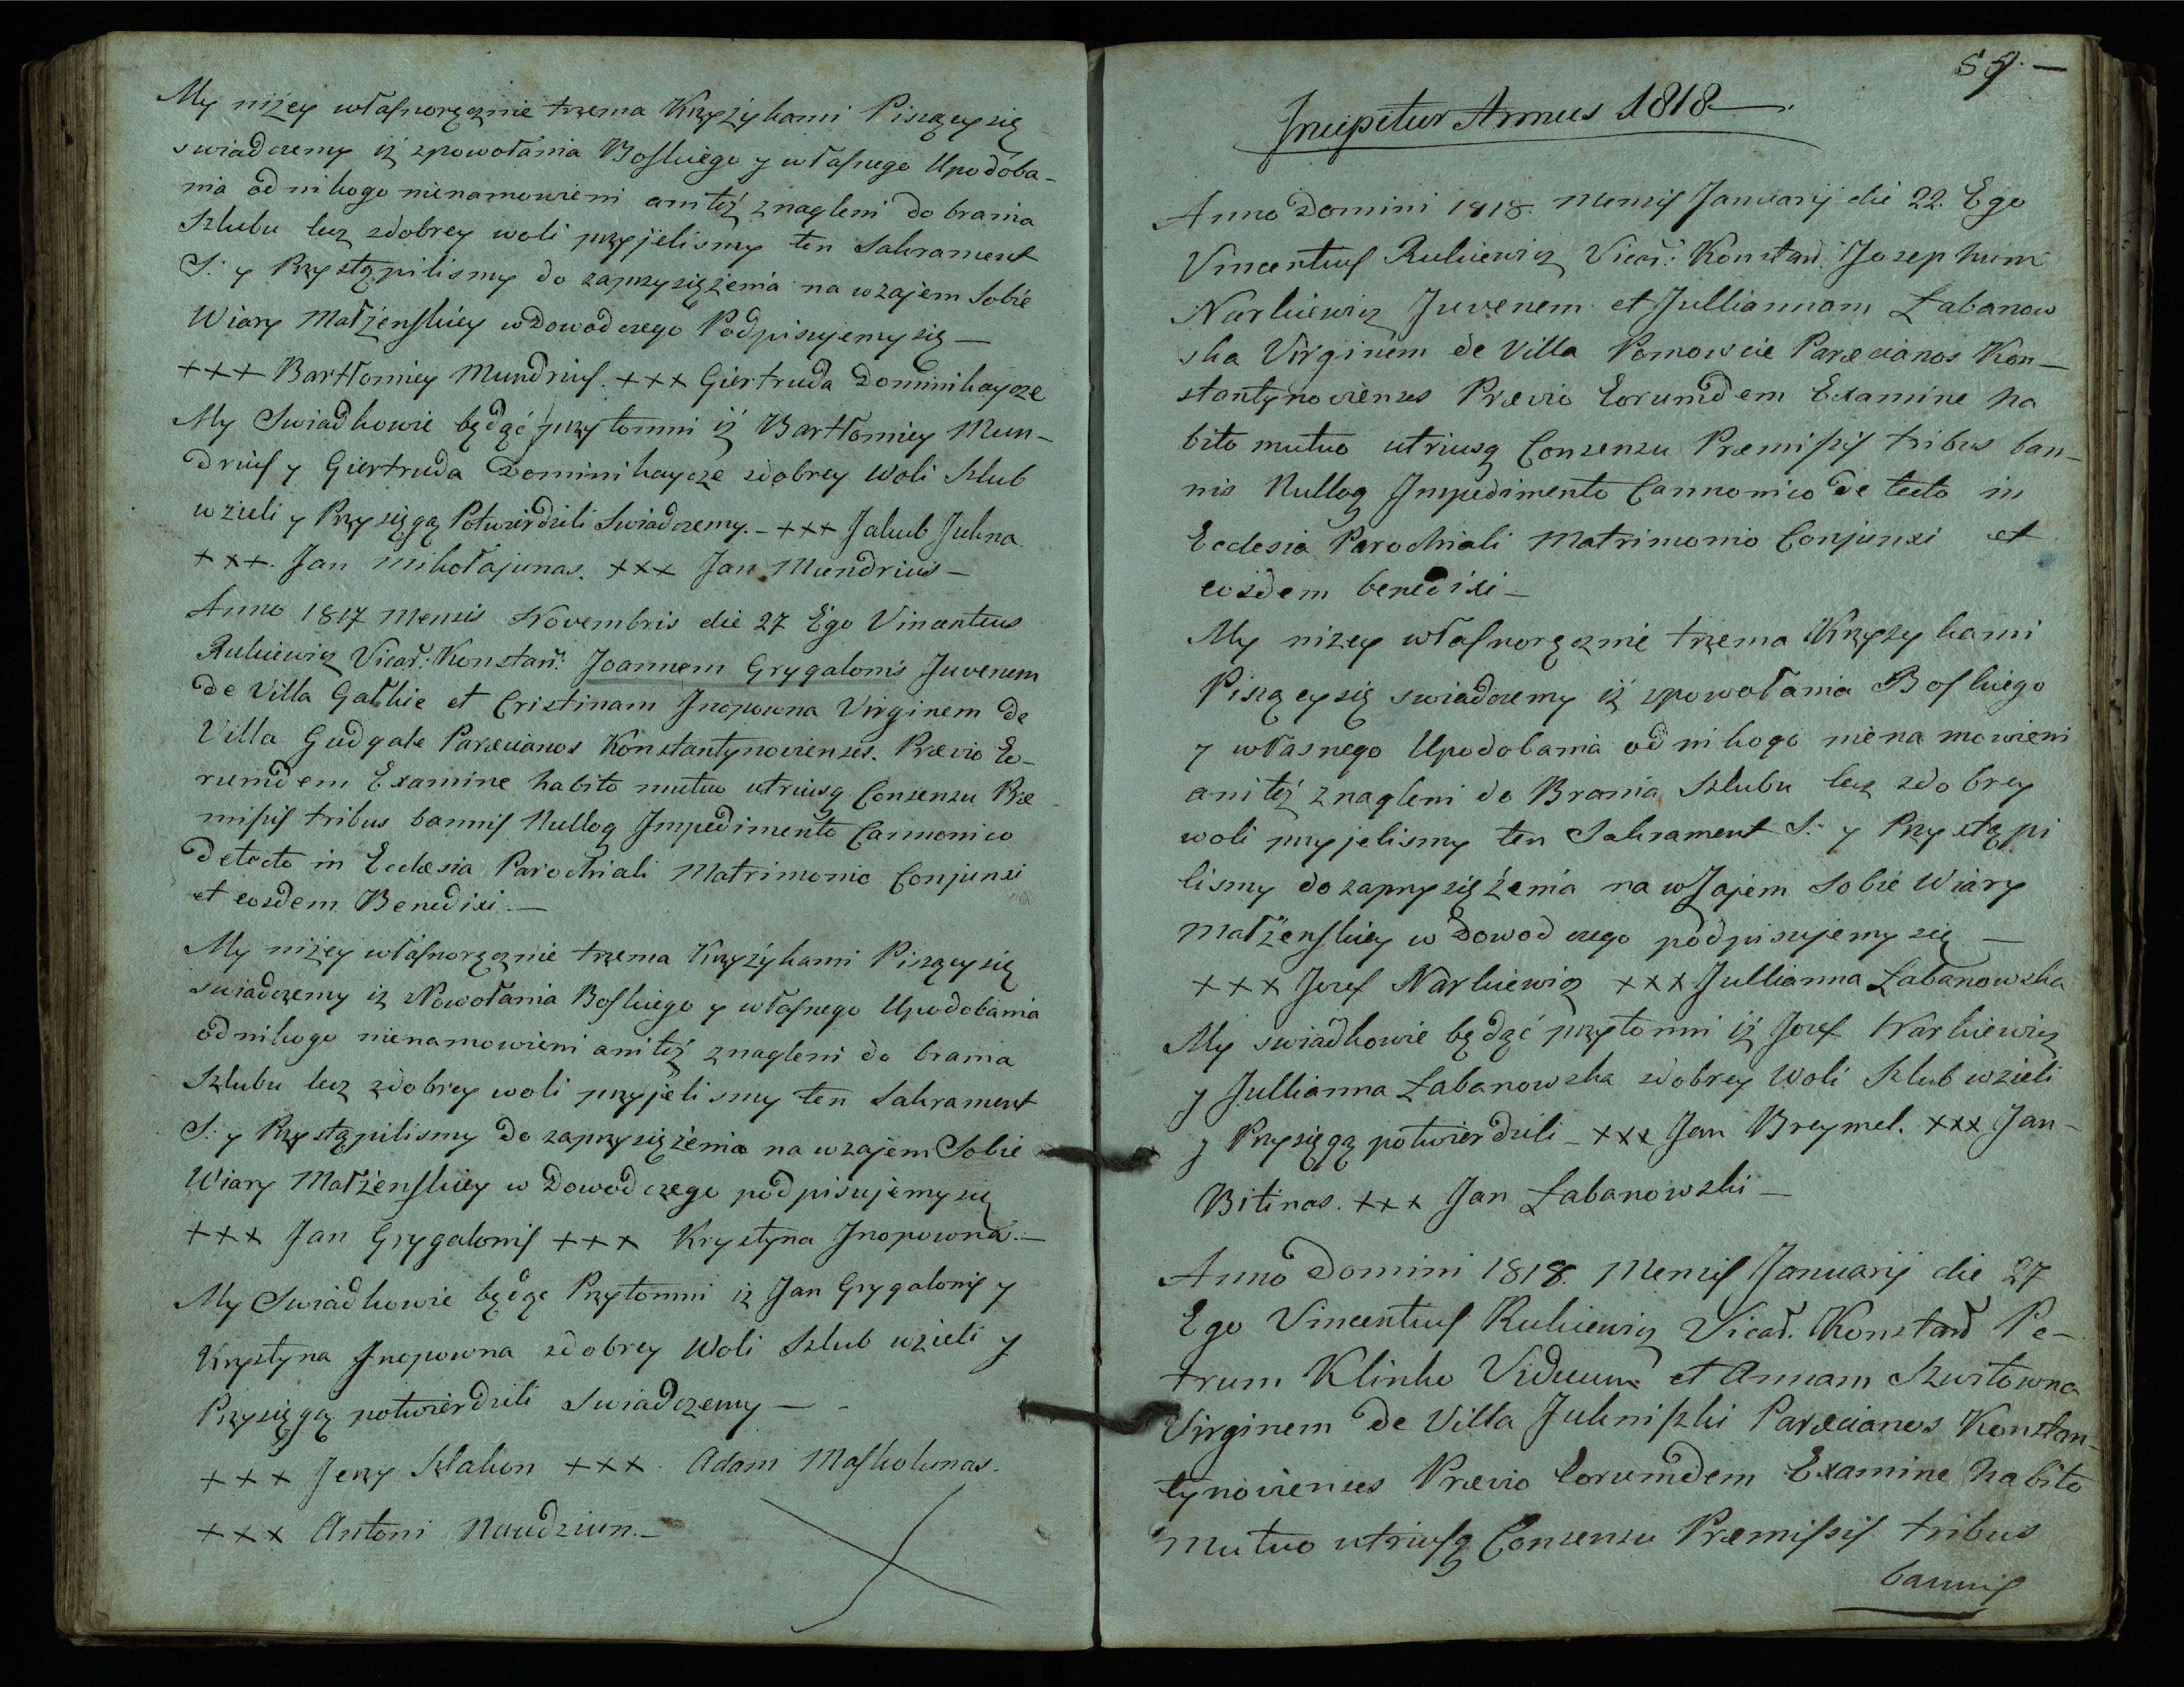 My niżey własnoręcznie trzema Krzyżykami Piszący się
swiadczemy iż zpowołania Boskiego y własnego Upodoba-
nia od nikogo nienamowieni anitéż znagleni do brania
Szlubu lecz zdobrey woli przyjelismy ten Sakrament
S: y Przystąpilismy do zaprzysiężenia na wzajem Sobie
Wiary Małżenskiey wdowod czego Podpisujemy się —
+++ Bartłomiey Mundrius. +++ Giertruda Dominikaycze
My Swiadkowie będąć przytomni iż Bartłomiey Mun-
drius y Giertruda Dominikaycze zdobrey Woli Szlub
wzieli y Przysięgą Potwierdzili Swiadczemy. - +++ Jakub Jukna
+++. Jan Mikołajunas. +++ Jan Mundrius —
Anno 1817 Mensis Novembris die 27 Ego Vincentius
Rukiewicz Vicar: Konstan: Joannem Grygalonis Juvenem
de Villa Gałkie et Cristinam Jnopowna Virginem de
Villa Gudgale Paræcianos Konstantynovienses. Prævio Eo-
rumdem Examine habito mutuo utriusq Consensu Præ-
missis tribus bannis Nulloq Impedimento Cannonico
detecto in Ecclesia Parochiali Matrimonio Conjunxi
et eosdem Benedixi —
My niżey własnoręcznie trzema Krzyżykami Piszący się
swiadczemy iz Nowołania Boskiego y własnego Upodobania
od nikogo nienamowieni anitéż znagleni do brania
Szlubu lecz zdobrey woli przyjelismy ten Sakrament
S: y Przystąpilismy do zaprzysiężenia na wzajem Sobie
Wiary Małżenskiey w Dowod czego podpisujemy się
+++ Jan Grygalonis +++ Krystyna Jnopowna. —
My Swiadkowie będąc Przytomni iz Jan Grygalonis y
Krystyna Jnopowna zdobrey Woli Szlub wzieli y
Przysięgą potwierdzili Swiadczemy —
+++ Jerzy Szlakon +++. Adam Maskolunas.
+++ Antoni Naudziun. —
59. —
Incipitur Annus 1818 —.
Anno Domini 1818. Mensis Januarij die 22. Ego
Vincentius Rukiewicz Vicar: Konstan: Josephum
Narkiewicz Juvenem et Julliannam Łabanow
ska Virginem de Villa Pomowcie Paræcianos Kon-
stantynovienses Prævio Eorumdem Examine ha
bito mutuo utriusq Consensu Præmissis tribus ban-
nis Nulloq Impedimento Cannonico detecto in
Ecclesia Parochiali Matrimonio Conjunxi et
eosdem benedixi —
My nizey własnoręcznie trzema Krzyzykami
Piszący się swiadczemy iż zpowołania Boskiego
y własnego Upodobania od nikogo niena mowieni
anitéż znagleni do Brania Szlubu lecz zdobrey
woli przyjelismy ten Sakrament S: y Przystąpi
lismy do zaprzysiężenia na wzajem Sobie Wiary
Małżenskiey w Dowod czego podpisujemy się —
+++ Jozef Narkiewicz +++ Jullianna Łabanowska
My swiadkowie będąć przytomni iż Jozef Narkiewicz
y Jullianna Łabanowska zdobrey Woli Szlub wzieli
y Przysięgą potwierdzili - +++ Jan Breymel. +++ Jan-
Bitinas. +++ Jan Łabanowski —
Anno Domini 1818. Mensis Januarij die 27
Ego Vincentius Rukiewicz Vicar. Konstan Pe-
trum Klinko Viduum et Annam Szwitowna
Virginem de Villa Jukniszki Paræcianos Konstan-
tynovienses Prævio Eorumdem Examine habito
Mutuo utriusq Consensu Præmissis tribus
bannis